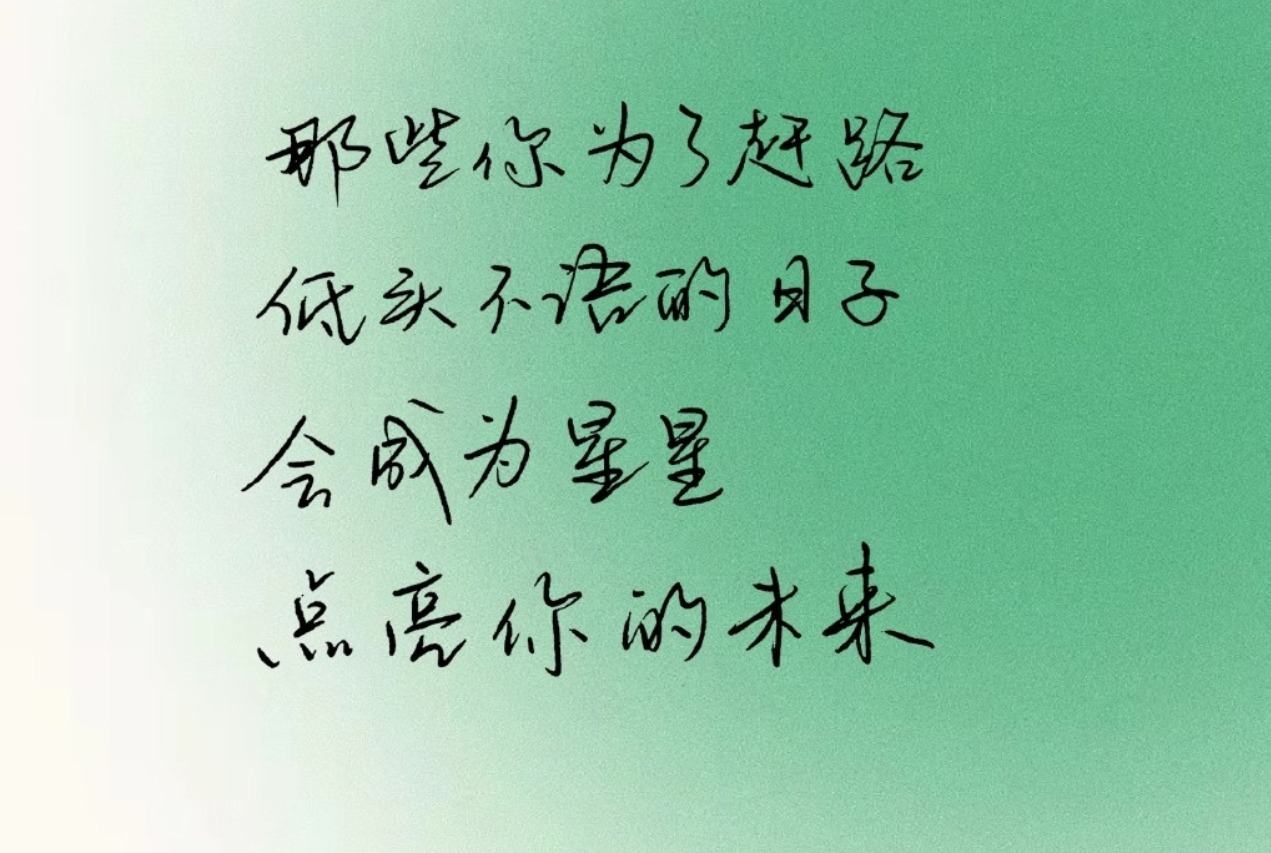 那些你为了赶路
低头不语的日子
会成为星星
点亮你的未来